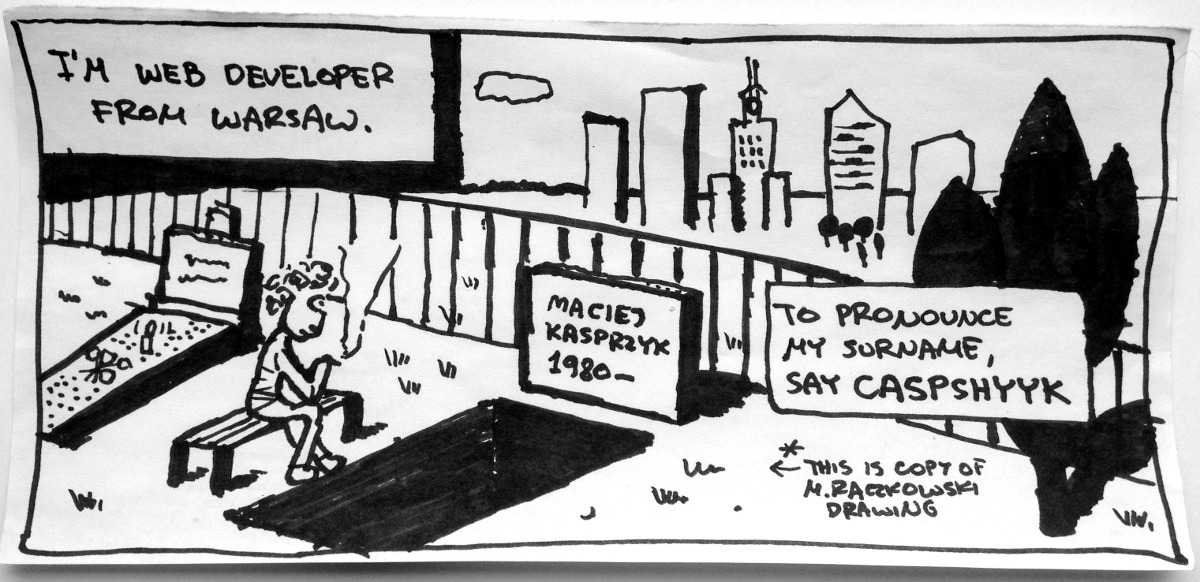 I'M WEB DEVELOPER
FROM WARSAW.
MACIEJ
KASPRZYK
1980–
TO PRONOUNCE
MY SURNAME,
SAY CASPSHYYK
*
← THIS IS COPY OF
M. RACZKOWSKI
DRAWING